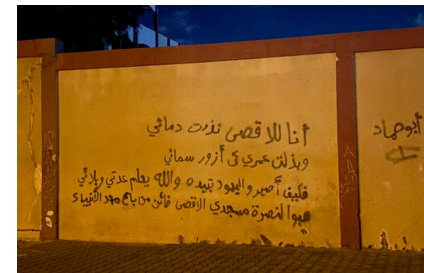 أنا للاقصى نذرت دمائي
وبذلت عمري كي أزور سمائي
فكيف أصبر واليهود تبيده والله يعلم عدتي وبلائي
هبوا لنصرة مسجدي الاقصى فأين من باع مهد الأنبياء
أبو حماد